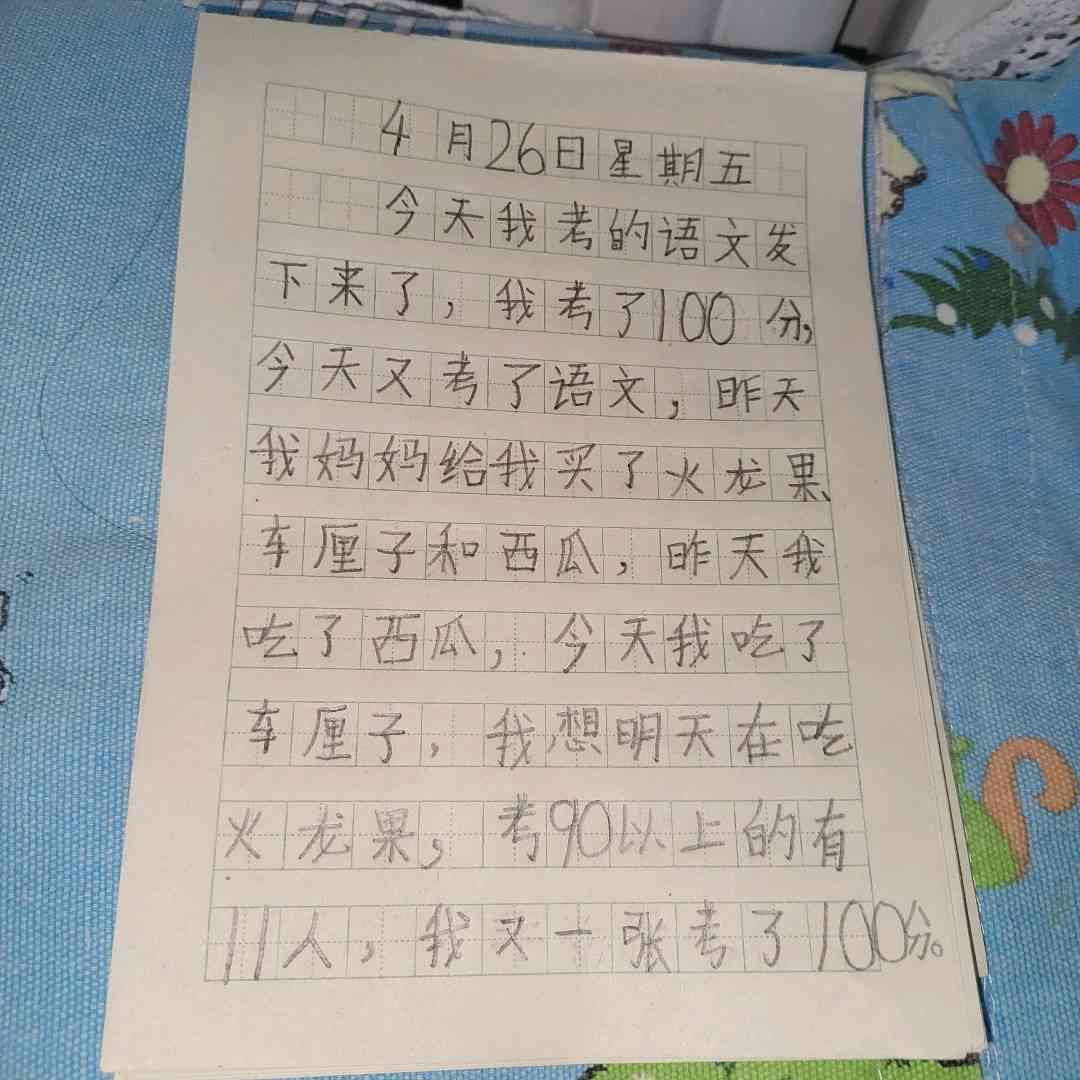 4月26日星期五
今天我考的语文发
下来了，我考了100分，
今天又考了语文，昨天
我妈妈给我买了火龙果、
车厘子和西瓜，昨天我
吃了西瓜，今天我吃了
车厘子，我想明天在吃
火龙果，考90以上的有
11人，我又一张考了100分。